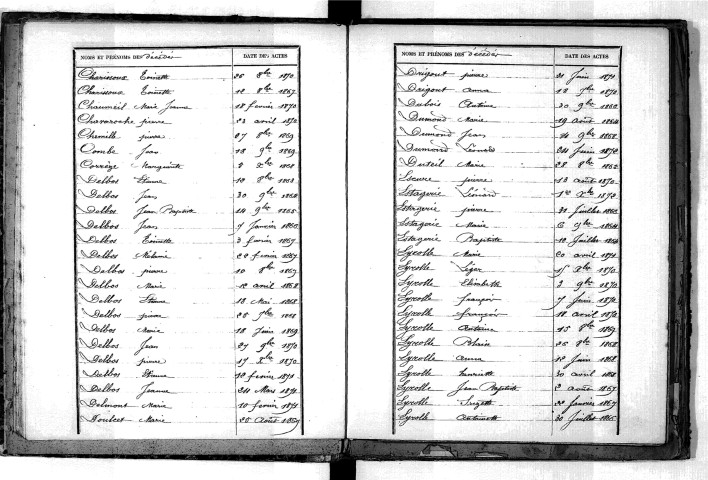 NOMS ET PRÉNOMS DES décédés DATE DES ACTES
Charissoux Toinette 26 8bre 1870
Charissoux Toinette 12 8bre 1867
Chaumeil Marie Jeanne 18 fevrier 1870
Chavaroche pierre 23 avril 1870
Chemille pierre 27 8bre 1869
Combe Jean 18 9bre 1869
Corrèze Marguerite 2 Xbre 1868
Delbos Etienne 10 8bre 1863
Delbos Jean 30 9bre 1864
Delbos Jean Baptiste 14 9bre 1865
Delbos Jean 9 Janvier 1866
Delbos Toinette 3 fevrier 1867
Delbos Melanie 20 fevrier 1867
Delbos pierre 10 8bre 1867
Delbos Marie 12 avril 1868
Delbos Etienne 18 Mai 1868
Delbos pierre 25 7bre 1868
Delbos Marie 18 Juin 1869
Delbos Jean 27 9bre 1870
Delbos pierre 17 Xbre 1870
Delbos Etienne 12 fevrier 1871
Delbos Jeanne 24 Mars 1871
Delmont Marie 10 fevrier 1871
Doulcet Marie 20 Aout 1869
NOMS ET PRÉNOMS DES décédés DATE DES ACTES
Drigout pierre 21 Juin 1871
Drigout anna 12 9bre 1870
Dubois Antoine 20 9bre 1868
Dumond Marie 19 août 1864
Dumond Jean 14 9bre 1868
Dumond Léonard 24 Juin 1870
Duteil Marie 28 8bre 1862
pierre 13 août 1870
Estagerie Léonard 1er Xbre 1870
Estagerie pierre 31 Juillet 1862
Estagerie Marie 6 9bre 1864
Estagerie Baptiste 10 Juillet 1864
Eyrolle Marie 20 avril 1871
Eyrolle Léger 15 Xbre 1870
Eyrolle Elisabeth 2 9bre 1870
Eyrolle françois 7 Juin 1870
Eyrolle françois 12 avril 1870
Eyrolle Antoine 15 8bre 1869
Eyrolle Blaise 26 8bre 1868
Eyrolle anna 12 Juin 1868
Eyrolle henriette 20 avril 1868
Eyrolle Jean Baptiste 2 août 1867
Eyrolle Suzette 22 Janvier 1867
Eyrolle Antoinette 30 Juillet 1866